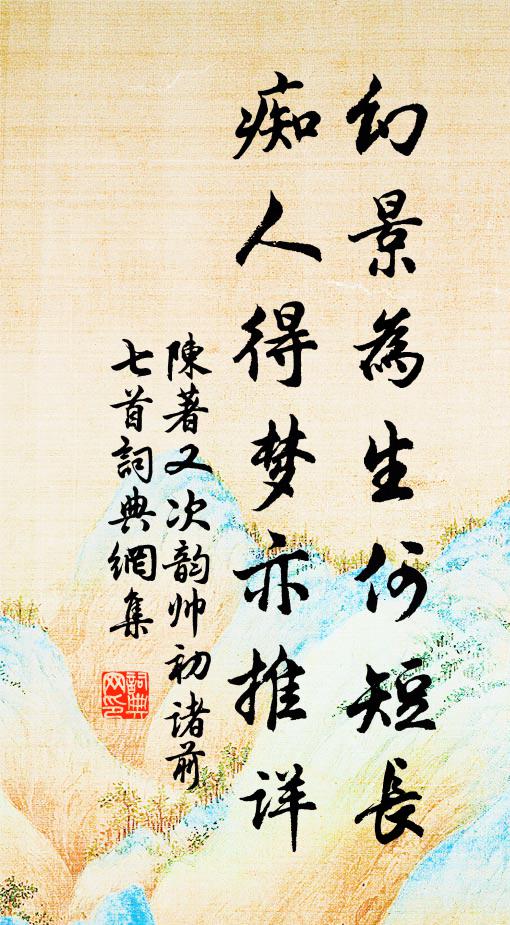 幻景為生何短長
痴人得梦亦推详
陳著又次韵帅初诸前
七首詞典網集
詞典
网印